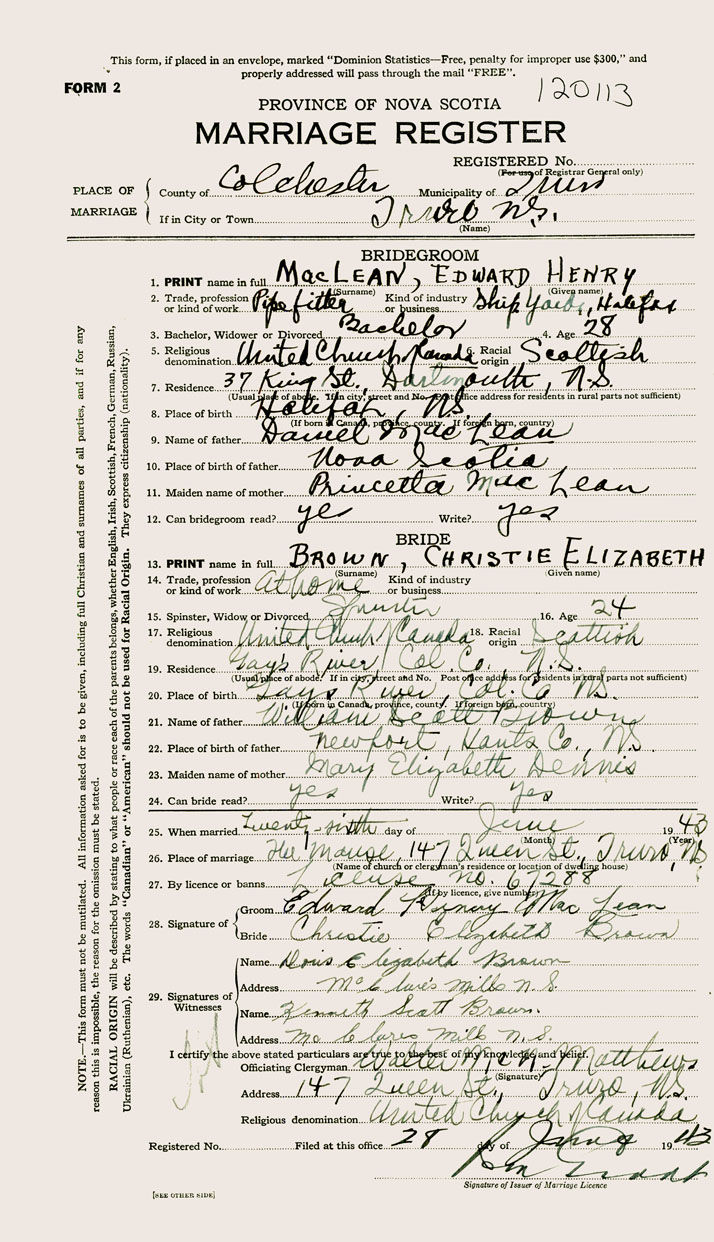 This form, if placed in an envelope, marked "Dominion Statistics—Free, penalty for improper use $300," and
properly addressed will pass through the mail "FREE".
FORM 2
120113
PROVINCE OF NOVA SCOTIA
MARRIAGE REGISTER
REGISTERED No.
(For use of Registrar General only)
PLACE OF MARRIAGE
County of Colchester Municipality of Truro
If in City or Town Truro N.S.
(Name)
BRIDEGROOM
1. PRINT name in full MacLEAN, EDWARD HENRY
(Surname) (Given name)
2. Trade, profession or kind of work Pipefitter Kind of industry or business Ship Yards, Halifax
3. Bachelor, Widower or Divorced Bachelor 4. Age 28
5. Religious denomination United Church/Canada 6. Racial origin Scottish
7. Residence 37 King St., Dartmouth, N.S.
(Usual place of abode. If in city, street and No. Post office address for residents in rural parts not sufficient)
8. Place of birth Halifax, NS.
(If born in Canada, province, county. If foreign born, country)
9. Name of father Daniel MacLean
10. Place of birth of father Nova Scotia
11. Maiden name of mother Princetta MacLean
12. Can bridegroom read? yes Write? yes
BRIDE
13. PRINT name in full BROWN, CHRISTIE ELIZABETH
(Surname) (Given name)
14. Trade, profession or kind of work at home Kind of industry or business
15. Spinster, Widow or Divorced Spinster 16. Age 24
17. Religious denomination United Church/Canada 18. Racial origin Scottish
19. Residence Gay's River, Col. Co., N.S.
(Usual place of abode. If in city, street and No. Post office address for residents in rural parts not sufficient)
20. Place of birth Gays River, Col. Co NS.
(If born in Canada, province, county. If foreign born, country)
21. Name of father William Scott Brown
22. Place of birth of father Newport, Hants Co., N.S.
23. Maiden name of mother Mary Elizabeth Dennis
24. Can bride read? yes Write? yes
25. When married Twenty-sixth day of June 19 43
(Month) (Year)
26. Place of marriage The Manse, 147 Queen St., Truro, NS
(Name of church or clergyman's residence or location of dwelling house)
27. By licence or banns License No. 67288
(If by licence, give number)
28. Signature of
Groom Edward Henry MacLean
Bride Christie Elizabeth Brown
29. Signatures of Witnesses
Name Doris Elizabeth Brown
Address McClure's Mills N.S.
Name Kenneth Scott Brown.
Address McClures Mills N.S.
I certify the above stated particulars are true to the best of my knowledge and belief.
Officiating Clergyman Walter Matthews
(Signature)
Address 147 Queen St., Truro, N.S.
Religious denomination United Church/Canada
Registered No. Filed at this office 28 day of June 19 43
Signature of Issuer of Marriage Licence
[SEE OTHER SIDE]
NOTE.—This form must not be mutilated. All information asked for is to be given, including full Christian and surnames of all parties, and if for any
reason this is impossible, the reason for the omission must be stated.
RACIAL ORIGIN will be described by stating to what people or race each of the parents belongs, whether English, Irish, Scottish, French, German, Russian,
Ukrainian (Ruthenian), etc. The words "Canadian" or "American" should not be used for Racial Origin. They express citizenship (nationality).